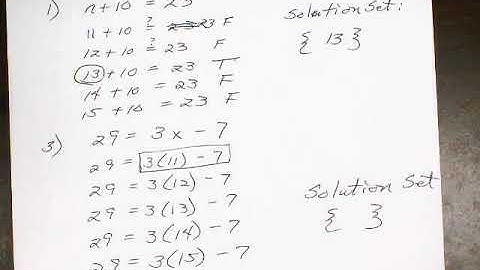 1) n + 10 = 23
11 + 10 ?= 23 F
12 + 10 ?= 23 F
13 + 10 = 23 T
14 + 10 = 23 F
15 + 10 = 23 F
Solution Set:
{ 13 }
3) 29 = 3x - 7
29 = 3(11) - 7
29 = 3(12) - 7
29 = 3(13) - 7
29 = 3(14) - 7
29 = 3(15) - 7
Solution Set
{ }